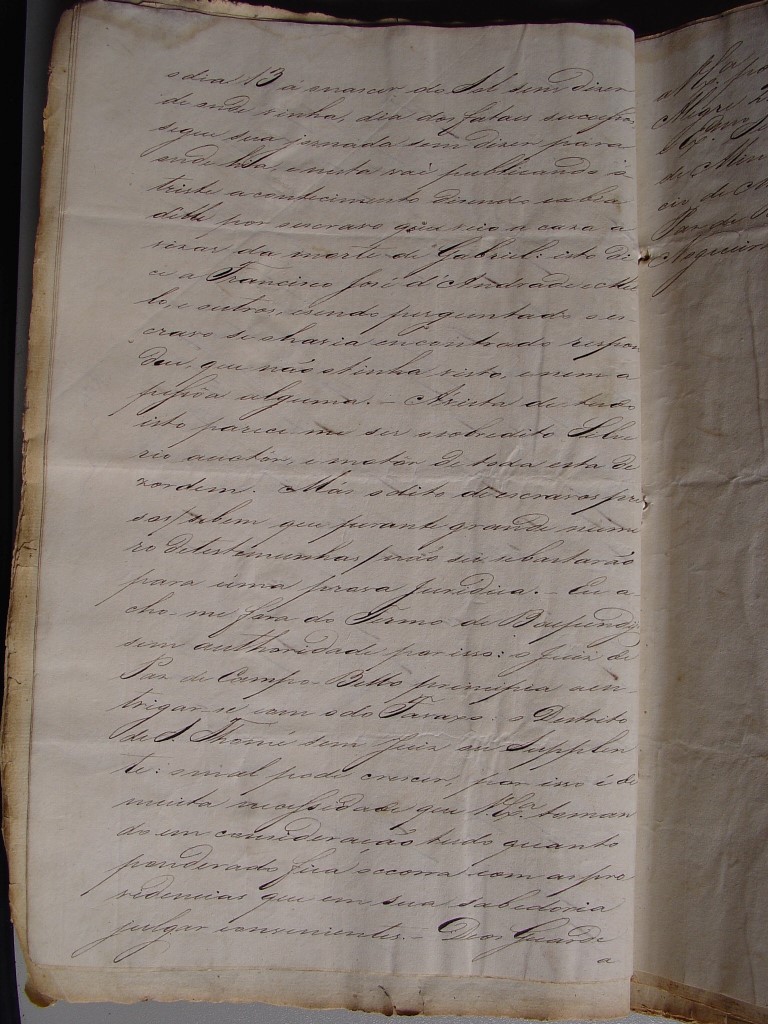 o dia 13 á o nascer do Sol sem dizer
de onde vinha, dia dos fataes successos,
segue sua jornada sem dizer para
onde hia, e nesta vai publicando o
triste acontecimento dizendo sabia
delle por escravo que veio a caza a
vizar da morte de Gabriel: isto di
ce a Francisco José d'Andrade e Mel
lo, e outros, e sendo perguntado o es
cravo se o havia encontrado respon
deu, que não o tinha visto, e nem a
pessôa alguma. – A vista de tudo
isto parece me ser o sobredito Silve
rio auctôr, e motôr de toda esta de
zordem. Más o dito de escravos pre
sos, se bem que perante grande nume
ro de testemunhas, não sei se bastarão
para uma prova Juridica. – Eu a
cho-me fora do Termo de Baependi
sem authoridade por isso: o Juiz de
Paz de Campo Bello principia a en
trigar-se com o do Favaxo: o Destrito
de S. Thomé sem Juiz ou Supplen
te: o mal pode crescer, por isso é de
muita necessidade que V. Exª. toman
do em consideração tudo quanto
ponderado fica soccorra com as pro
videncias que em sua sabedoria
julgar convenientes. – Deos Guarde
a
a V. Exª. por
Alegre 2
Exmo. Sr.
de Min
cio de
Paz de
Nogueira